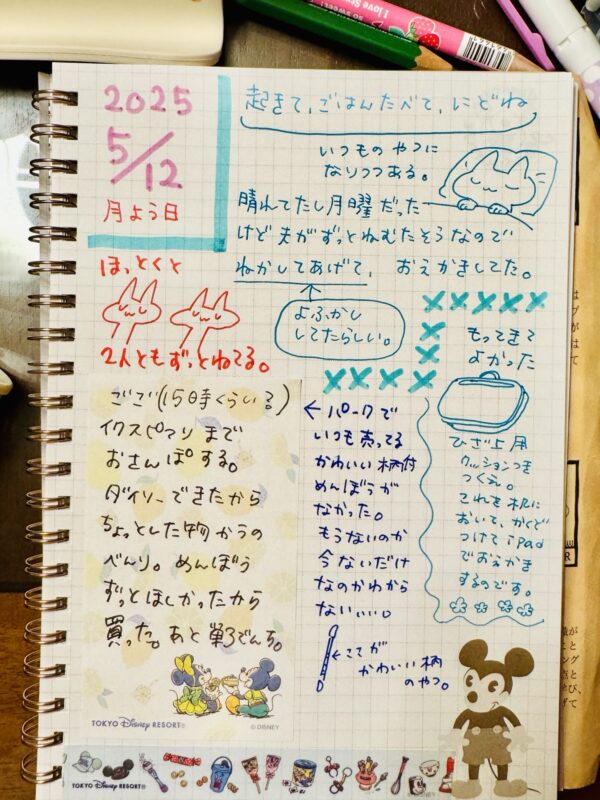 I Love Str
2025
5/12
月よう日
起きて、ごはんたべて、にどね
いつものやつに
なりつつある。
晴れてたし月曜だった
けど夫がずっとねむたそうなので
ねかしてあげて、おえかきしてた。
よふかし
してたらしい。
ほっとくと
2人ともずっとねてる。
もってきて
よかった
ひざ上用
クッションつき
つくえ。
これを机に
おいて、かくど
つけてiPad
でおえかき
するのです。
ごご(15時くらい?)
イクスピアリまで
おさんぽする。
ダイソーできたから
ちょっとした物かうの
べんり。めんぼう
ずっとほしかったから
買った。あと単3でんち。
←パークで
いつも売ってる
かわいい柄付
めんぼうが
なかった。
もうないのか
今ないだけ
なのかわから
ないいい。
←ここが
かわいい柄
のやつ。
TOKYO Disney RESORT®
© DISNEY
TOKYO Disney RESORT®